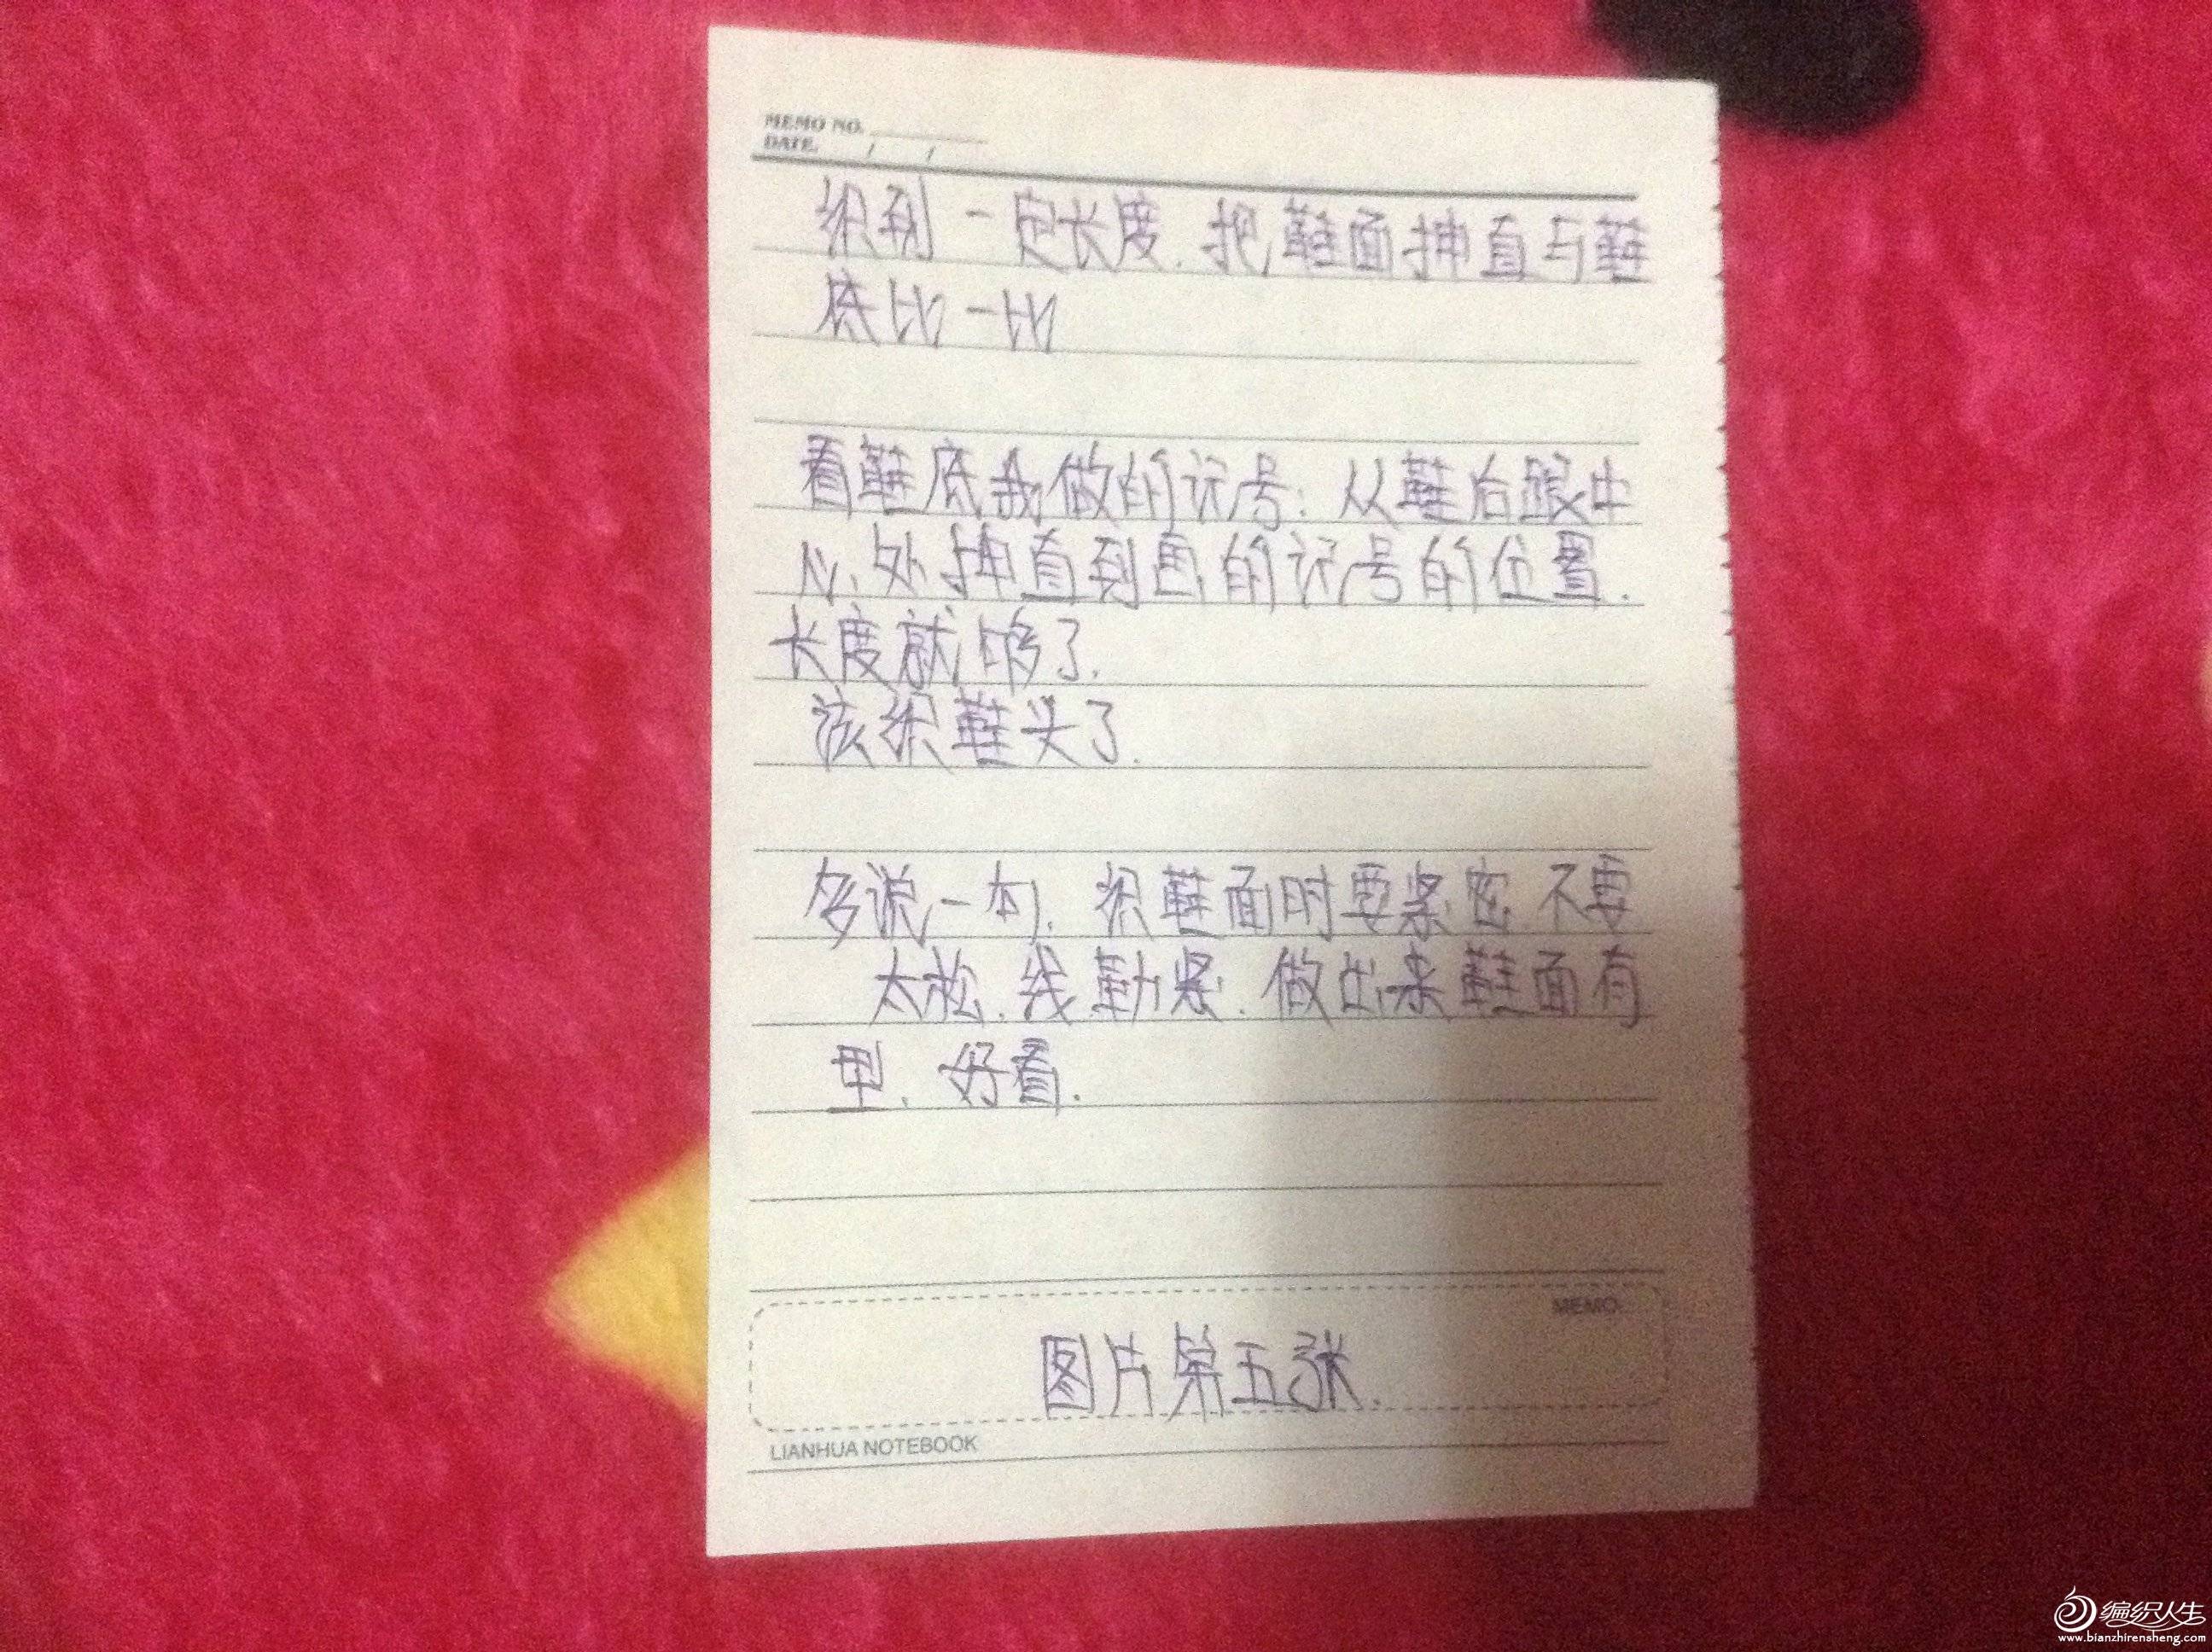 MEMO NO.
DATE. / /
织到一定长度.把鞋面抻直与鞋
底比一比
看鞋底我做的记号:从鞋后跟中
心处抻直到画的记号的位置.
长度就够了.
该织鞋头了.
多说一句.织鞋面时要紧密 不要
太松.线勒紧.做出来鞋面有
型、好看.
MEMO:
图片第五张.
LIANHUA NOTEBOOK
编织人生
www.bianzhirensheng.com